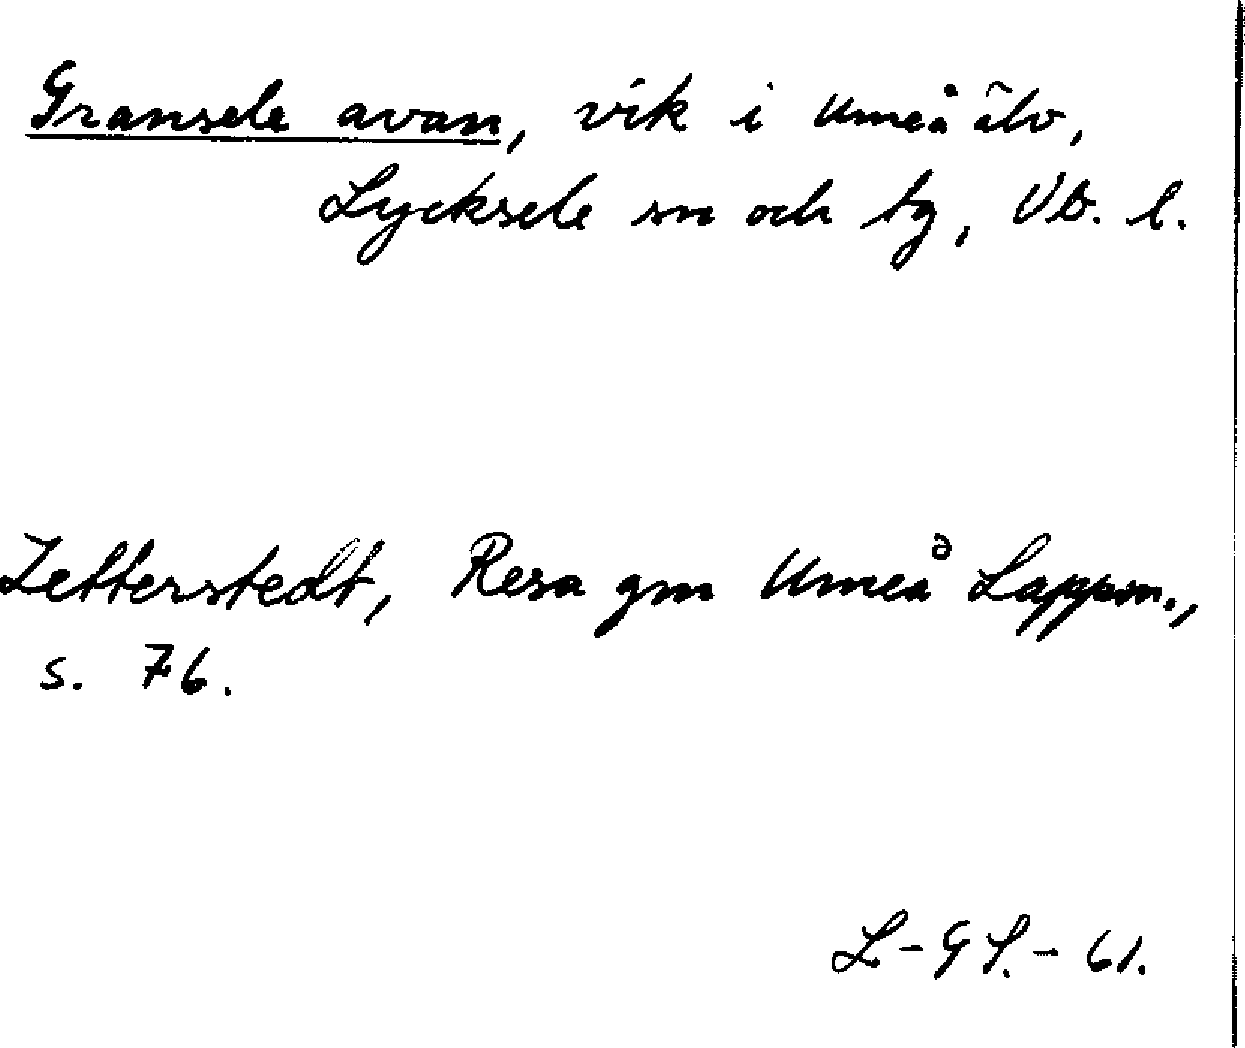 Gransele avan, vik i Umeå älv,
Lycksele sn och tg, Vb. l.
Zetterstedt, Resa gm Umeå Lappm.,
s. 76.
L-GL.-61.